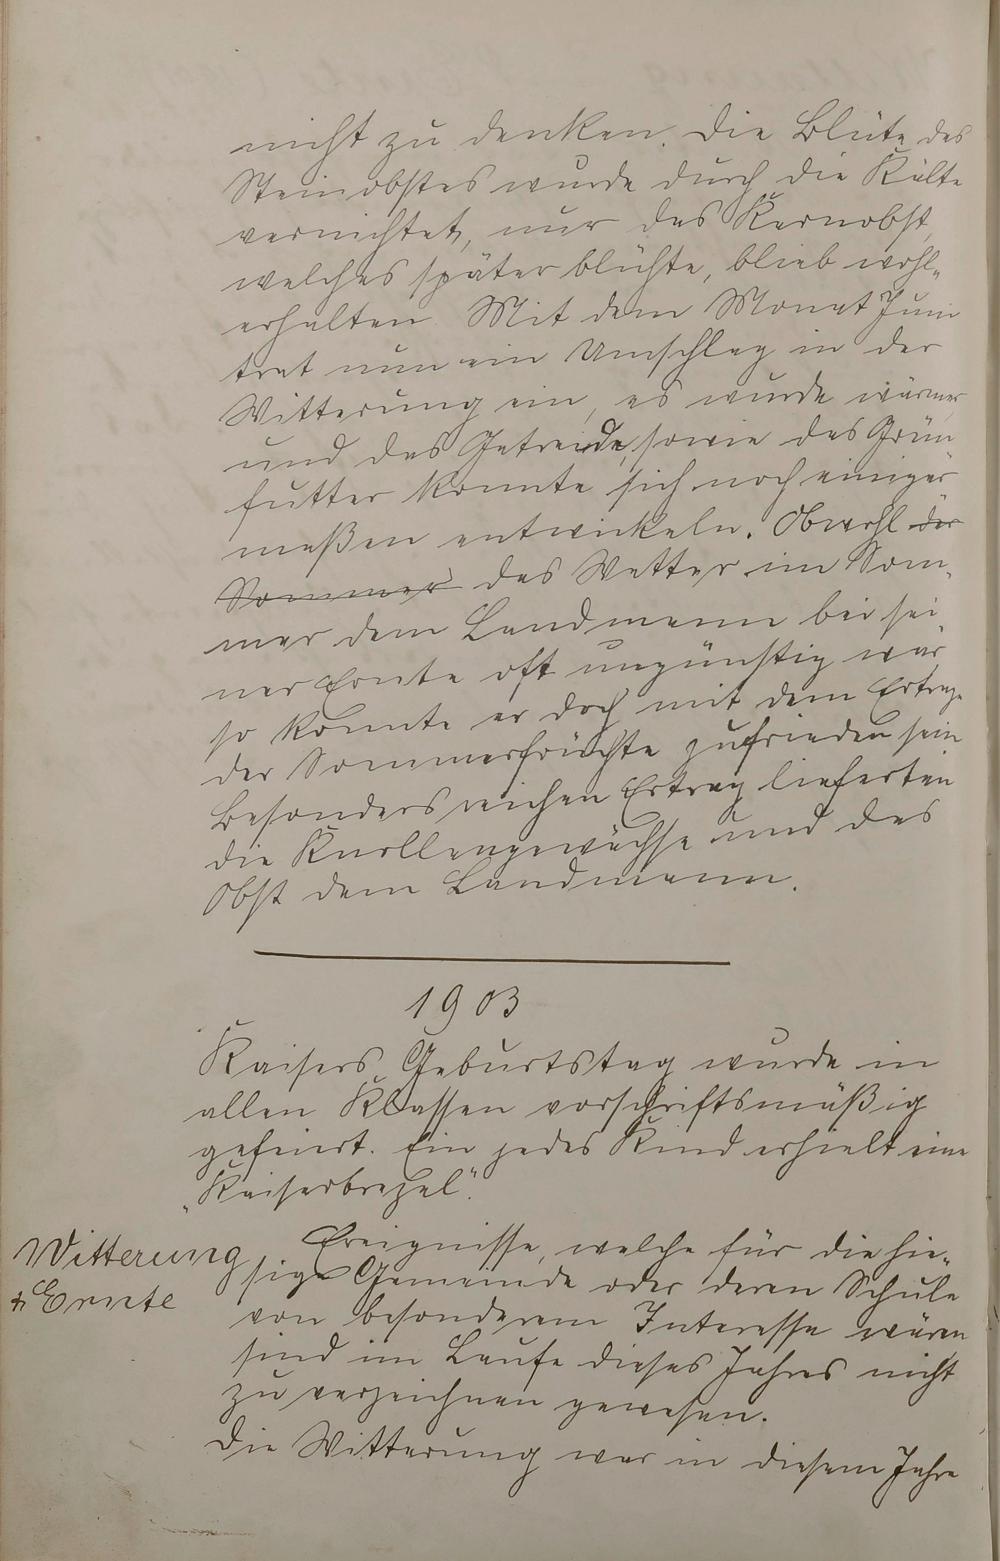 nicht zu denken. Die Blüte des
Steinobstes wurde durch die Kälte
vernichtet, nur das Kernobst,
welches später blühte, blieb wohl-
erhalten. Mit dem Monat Juni
trat nun ein Umschlag in der
Witterung ein, es wurde wärmer
und das Getreide, sowie das Grün
futter konnte sich noch einiger
maßen entwickeln. Obwohl der
Sommer das Wetter im Som-
mer dem Landmann bei sei
ner Ernte oft ungünstig war,
so konnte er doch mit dem Ertrage
der Sommerfrüchte zufrieden sein
Besonders reichen Ertrag lieferten
die Knollengewächse und das
Obst dem Landmann.
1903
Kaisers Geburtstag wurde in
allen Klassen vorschriftsmäßig
gefeiert. Ein jedes Kind erhielt eine
„Kaiserbrezel".
Witterung
& Ernte
Ereignisse, welche für die hie-
sige Gemeinde oder deren Schule
von besonderem Interesse wären
sind im Laufe dieses Jahres nicht
zu verzeichnen gewesen.
Die Witterung war in diesem Jahre